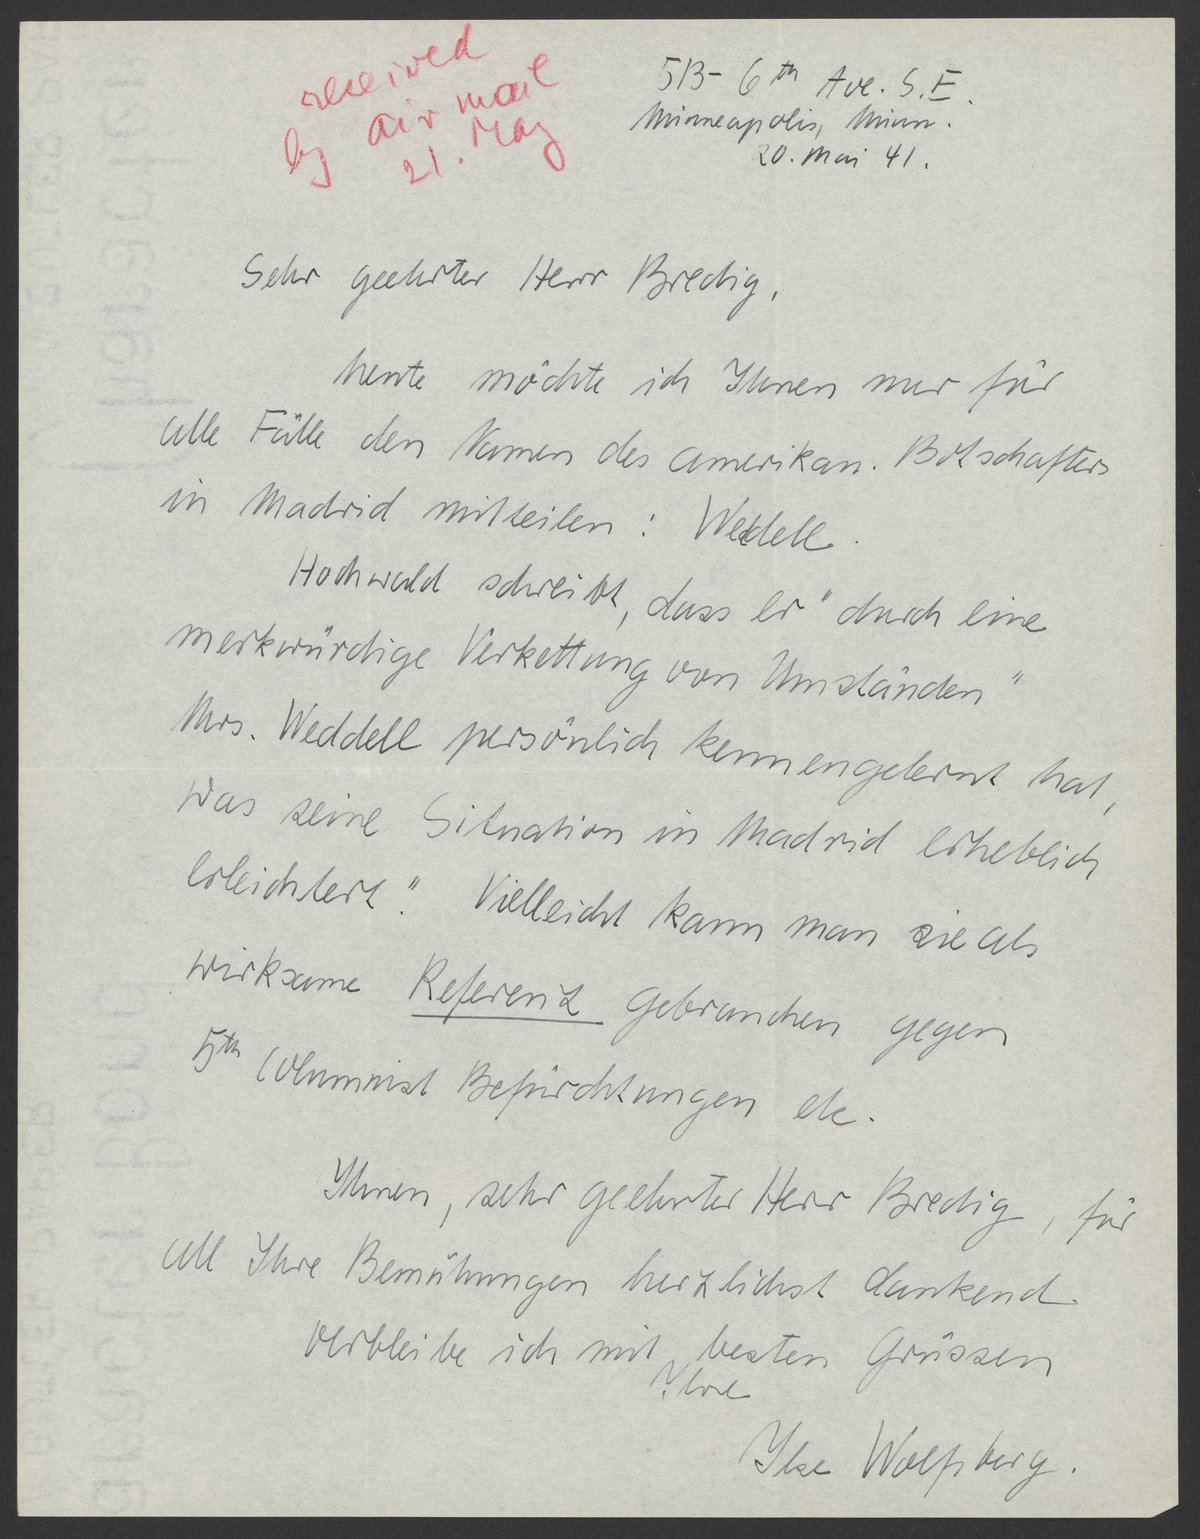 received
by air mail
21. May
513- 6th Ave. S.E.
Minneapolis, Minn.
20. Mai 41.
Sehr geehrter Herr Bredig,
heute möchte ich Ihnen nur für
alle Fälle den Namen des amerikan. Botschafters
in Madrid mitteilen: Weddell.
Hochwald schreibt, dass er "durch eine
merkwürdige Verkettung von Umständen"
Mrs. Weddell persönlich kennengelernt hat,
was seine Situation in Madrid erheblich
erleichtert". Vielleicht kann man sie als
wirksame Referenz gebrauchen gegen
5th Columnist Befürchtungen etc.
Ihnen, sehr geehrter Herr Bredig, für
all Ihre Bemühungen herzlichst dankend
verbleibe ich mit besten Grüssen
Ihre
Ilse Wolfsberg.